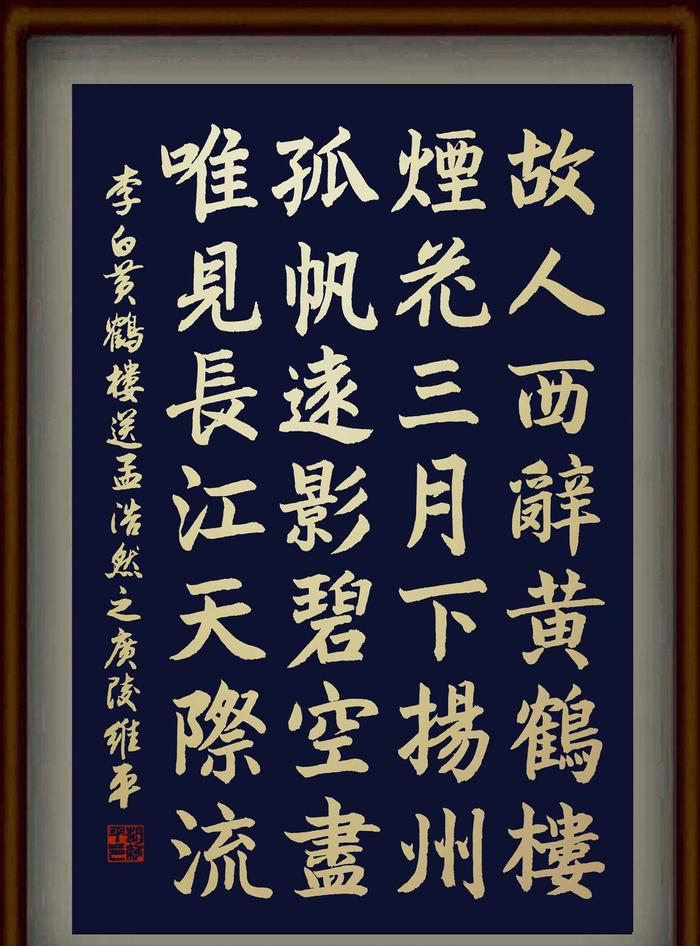 故人西辭黄鶴樓
煙花三月下揚州
孤帆遠影碧空盡
唯見長江天際流
李白黄鶴樓送孟浩然之廣陵維平